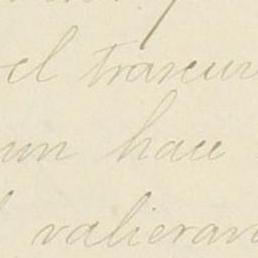 el trascur
un hace
valieran